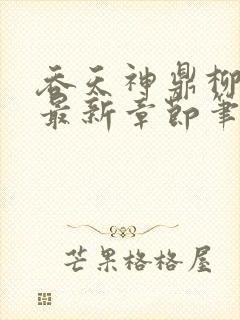 吞天神鼎柳
最新章節筆
芒果格格屋